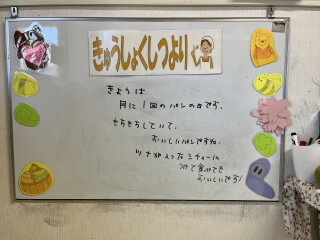 きゅうしょくしつより
きょうは
月に1回のパンの日です。
もちもちしていて、
おいしいパンですね。
ツナが入ったシチューに
つけて食べても
おいしいです!